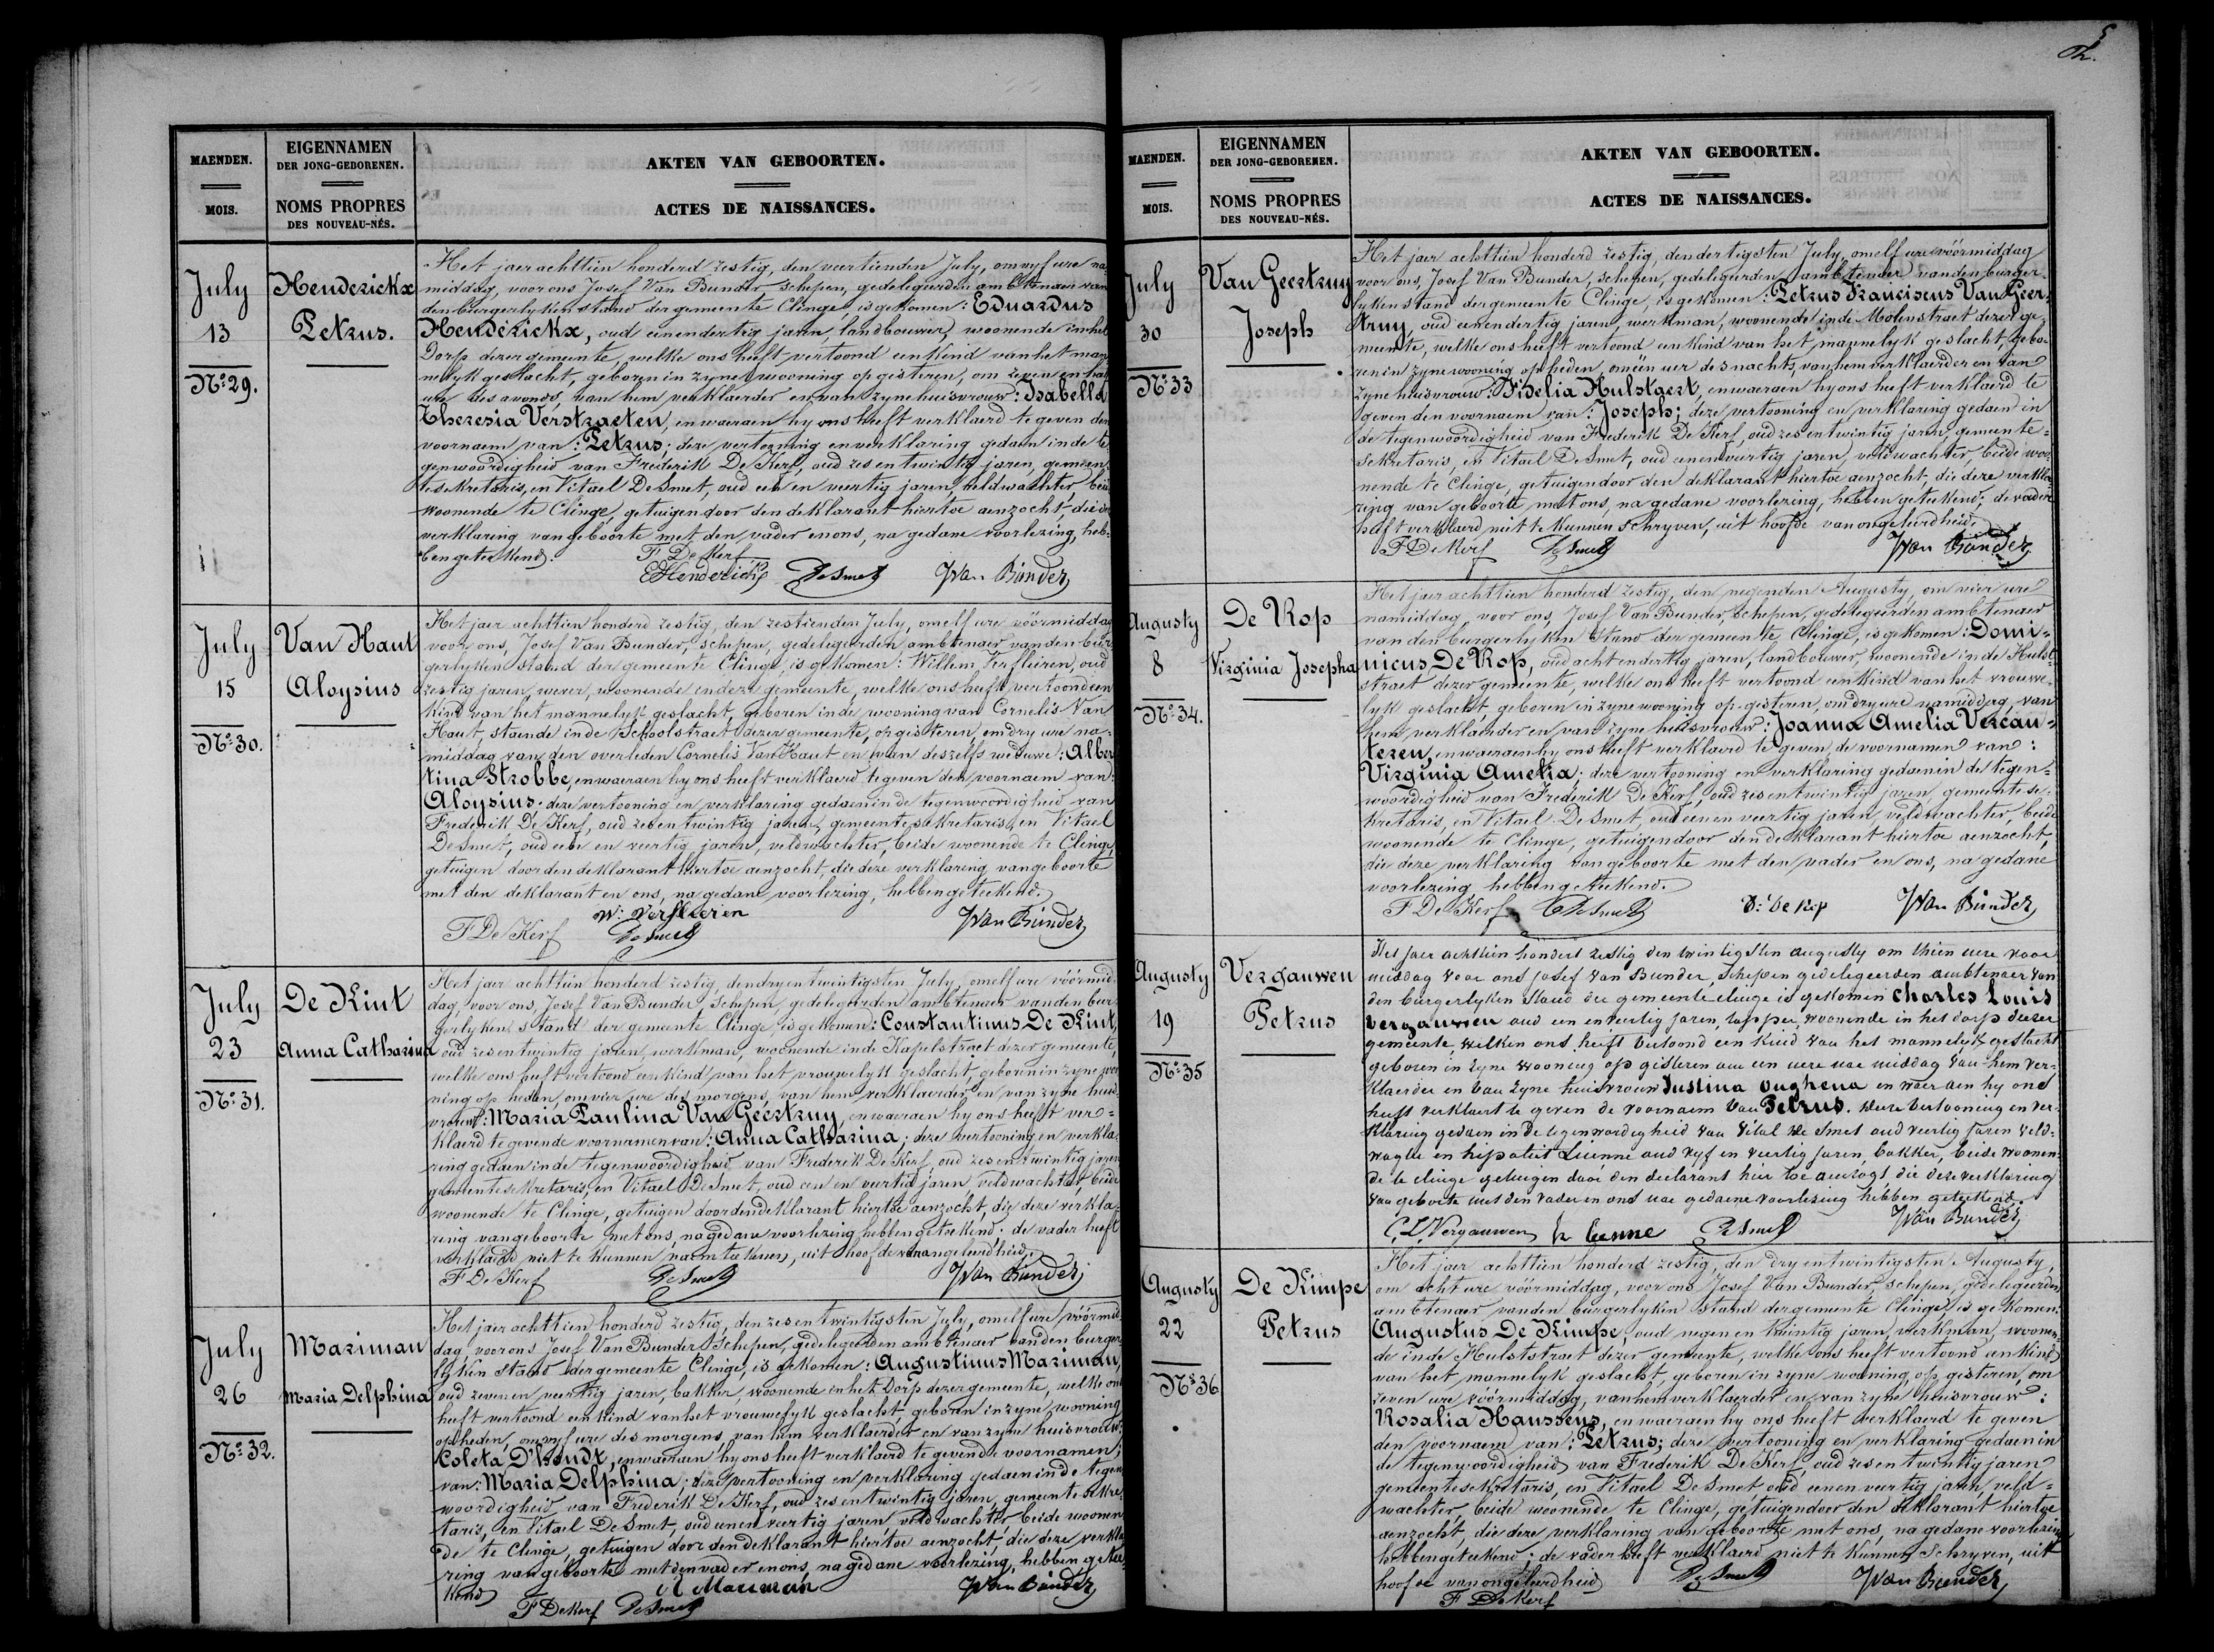 5
MAENDEN.
MOIS.
EIGENNAMEN
DER JONG-GEBORENEN.
NOMS PROPRES
DES NOUVEAU-NÉS.
AKTEN VAN GEBOORTEN.
ACTES DE NAISSANCES.
July
13
Nº 29.
Henderickx
Petrus.
Het jaer achttien honderd zestig, den veertienden July, om vyf ure na-
middag, voor ons Josef Van Bunder schepen, gedelegeerden ambtenaer van
den burgerlyken stand der gemeente Clinge, is gekomen: Eduardus
Henderickx, oud eenendertig jaren, landbouwer, woonende in het
Dorp dezer gemeente, welke ons heeft vertoond een kind van het man-
nelyk geslacht, geboren in zyne wooning op gisteren, om zeven en half
ure des avonds, van hem verklaerder en van zyne huisvrouw: Isabella
Theresia Verstraeten, en waeraen hy ons heeft verklaerd te geven den
voornaem van: Petrus; deze vertooning en verklaring gedaen in de te-
genwoordigheid van Frederik De Kerf, oud zes en twintig jaren, gemeen-
tesekretaris, en Vitael De Smet, oud een en veertig jaren, veldwachter, beide
woonende te Clinge, getuigen door den deklarant hiertoe aenzocht, die deze
verklaring van geboorte met den vader en ons, na gedane voorlezing, heb-
ben geteekend.
F De Kerf
E Henderickx DeSmet JVan Bunder
July
15
Nº 30.
Van Haut
Aloysius
Het jaer achttien honderd zestig, den zestienden July, om elf ure vóórmiddag
voor ons, Josef Van Bunder, schepen, gedelegeerden ambtenaer van den bur-
gerlyken stand der gemeente Clinge, is gekomen: Willem Verfleiren, oud
zestig jaren, wever, woonende in deze gemeente, welke ons heeft vertoond een
kind van het mannelyk geslacht, geboren in de wooning van Cornelis Van
Haut, staende in de Schoolstraet dezer gemeente, op gisteren, om dry ure na-
middag van den overleden Cornelis Van Haut en van deszelfs weduwe: Alber-
tina Strobbe, en waeraen hy ons heeft verklaerd te geven den voornaem van:
Aloysius; deze vertooning en verklaring gedaen in de tegenwoordigheid van
Frederik De Kerf, oud zes en twintig jaren, gemeentesekretaris, en Vitael
De Smet, oud een en veertig jaren, veldwachter, beide woonende te Clinge,
getuigen door den deklarant hiertoe aenzocht, die deze verklaring van geboorte
met den deklarant en ons, na gedane voorlezing, hebben geteekend.
W: Verfleeren
F De Kerf DeSmet JVan Bunder
July
23
Nº 31.
De Kint
Anna Catharina
Het jaer achttien honderd zestig, den dryentwintigsten July, om elf ure vóórmid-
dag, voor ons, Josef Van Bunder, schepen, gedelegeerden ambtenaer van den bur-
gerlyken stand der gemeente Clinge, is gekomen: Constantinus De Kint,
oud zesentwintig jaren, werkman, woonende in de Kapelstraet dezer gemeente,
welke ons heeft vertoond een kind van het vrouwelyk geslacht, geboren in zyne woo-
ning op heden, om vier ure des morgens, van hem verklaerder, en van zyne huis-
vrouw: Maria Paulina Van Geertruy, en waeraen hy ons heeft ver-
klaerd te geven de voornamen van: Anna Catharina; deze vertooning en verkla-
ring gedaen in de tegenwoordigheid van Frederik De Kerf, oud zes en twintig jaren
gemeentesekretaris, en Vitael De Smet, oud een en veertig jaren, veldwachter, beide
woonende te Clinge, getuigen door den deklarant hiertoe aenzocht, die deze verkla-
ring van geboorte met ons, na gedane voorlezing hebben geteekend; de vader heeft
verklaerd niet te kunnen naemteekenen, uit hoofde van ongeleerdheid.
F De Kerf DeSmet JVan Bunder
July
26
Nº 32.
Mariman
Maria Delphina
Het jaer achttien honderd zestig, den zes en twintigsten July, om elf ure vóórmid-
dag, voor ons Josef Van Bunder Schepen, gedelegeerden ambtenaer van den burger-
lyken stand der gemeente Clinge, is gekomen: Augustinus Mariman,
oud zeven en veertig jaren, bakker, woonende in het Dorp dezer gemeente, welke ons
heeft vertoond een kind van het vrouwelyk geslacht, geboren in zyne wooning
op heden, om vyf ure des morgens, van hem verklaerder en van zyne huisvrouw:
Coleta D'hondt, en waeraen hy ons heeft verklaerd te geven de voornamen
van: Maria Delphina; deze vertooning en verklaring gedaen in de tegen-
woordigheid van Frederik De Kerf, oud zes en twintig jaren, gemeente sekre-
taris, en Vitael De Smet, oud een en veertig jaren veldwachter beide woonen-
de te Clinge, getuigen door den deklarant hiertoe aenzocht, die deze verkla-
ring van geboorte met den vader en ons, na gedane voorlezing, hebben getee-
kend
A Mariman
F De Kerf DeSmet JVan Bunder
MAENDEN.
MOIS.
EIGENNAMEN
DER JONG-GEBORENEN.
NOMS PROPRES
DES NOUVEAU-NÉS.
AKTEN VAN GEBOORTEN.
ACTES DE NAISSANCES.
July
30
Nº 33
Van Geertruy
Joseph
Het jaer achttien honderd zestig, den dertigsten July, om elf ure vóórmiddag
voor ons, Josef Van Bunder, schepen, gedelegeerden ambtenaer van den burger-
lyken stand der gemeente Clinge, is gekomen: Petrus Franciscus Van Geer-
truy, oud eenendertig jaren, werkman, woonende in de Molenstraet dezer ge-
meente, welke ons heeft vertoond een kind van het mannelyk geslacht, gebo-
ren in zyne wooning op heden, om één uer des nachts, van hem verklaerder en van
zyne huisvrouw: Fidelia Hulstaert, en waeraen hy ons heeft verklaerd te
geven den voornaem van: Joseph; deze vertooning en verklaring gedaen in
de tegenwoordigheid van Frederik De Kerf, oud zes en twintig jaren, gemeente-
sekretaris, en Vitael De Smet, oud eenenveertig jaren, veldwachter, beide woo-
nende te Clinge, getuigen door den deklarant hiertoe aenzocht, die deze verkla-
ring van geboorte met ons, na gedane voorlezing, hebben geteekend; de vader
heeft verklaerd niet te kunnen schryven, uit hoofde van ongeleerdheid.
F De Kerf DeSmet JVan Bunder
Augusty
8
Nº 34.
De Rop
Virginia Josepha
Het jaer achttien honderd zestig, den negenden Augusty, om vier ure
namiddag, voor ons, Josef Van Bunder, schepen, gedelegeerden ambtenaer
van den burgerlyken stand der gemeente Clinge, is gekomen: Domi-
nicus De Rop, oud achtendertig jaren, landbouwer, woonende in de Hulst-
straet dezer gemeente, welke ons heeft vertoond een kind van het vrouwe-
lyk geslacht geboren in zyne wooning op gisteren, om dry ure namiddag, van
hem verklaerder en van zyne huisvrouw: Joanna Amelia Vercau-
teren, en waeraen hy ons heeft verklaerd te geven, de voornamen van:
Virginia Amelia; deze vertooning en verklaring gedaen in de tegen-
woordigheid van Frederik De Kerf, oud zes en twintig jaren, gemeentese-
kretaris, en Vitael De Smet, oud een en veertig jaren, veldwachter, beide
woonende te Clinge, getuigen door den deklarant hiertoe aenzocht,
die deze verklaring van geboorte met den vader en ons, na gedane
voorlezing hebben geteekend.
F De Kerf DeSmet D: De Rop JVan Bunder
Augusty
19
Nº 35
Vergauwen
Petrus
Het jaer achttien honderd zestig den twintigsten augusty om thien ure voor
middag voor ons Josef Van Bunder, Schepen gedelegeerden ambtenaer van
den burgerlyken stand der gemeente clinge is gekomen Charles Louis
Vergauwen oud een en veertig jaren, tapper, woonende in het dorp dezer
gemeente, welken ons heeft vertoond een kind van het mannelyk geslacht
geboren in zyne wooning op gisteren om een ure nae middag van hem ver-
klaerder en van zyne huisvrouw Justina Oughena en waeraen hy ons
heeft verklaert te geven de voornaem van Petrus. deze vertooning en ver-
klaring gedaen in de tegenwordigheid van Vital de Smet oud veertig jaren veld-
wagter en hipoliet Lienne oud vyf en veertig jaren, bakker, beide woonen-
de te clinge getuigen door den declarant hier toe aenzogt die deze verklaring
van geboorte met den vader en ons nae gedaene voorlezing hebben geteekend.
C L Vergauwen h Lienne DeSmet JVan Bunder
Augusty
22
Nº 36
De Kimpe
Petrus
Het jaer achttien honderd zestig, den dry entwintigsten Augusty,
om acht ure vóórmiddag, voor ons Josef Van Bunder, schepen, gedelegeerden
ambtenaer van den burgerlyken stand der gemeente Clinge is gekomen:
Augustus De Kimpe, oud negen en twintig jaren, werkman, woonen-
de in de Hulststraet dezer gemeente, welke ons heeft vertoond een kind
van het mannelyk geslacht, geboren in zyne wooning, op gisteren, om
zeven ure vóórmiddag, van hem verklaerder en van zyne huisvrouw:
Rosalia Haussens, en waeraen hy ons heeft verklaerd te geven
den voornaem van: Petrus; deze vertooning en verklaring gedaen in
de tegenwoordigheid van Frederik De Kerf, oud zes en twintig jaren
gemeentesekretaris, en Vitael De Smet oud eenen veertig jaren, veld-
wachter, beide woonende te Clinge, getuigen door den deklarant hiertoe
aenzocht, die deze verklaring van geboorte met ons, na gedane voorlezing
hebben geteekend; de vader heeft verklaerd niet te kunnen schryven, uit
hoofde van ongeleerdheid DeSmet JVan Bunder
F De Kerf